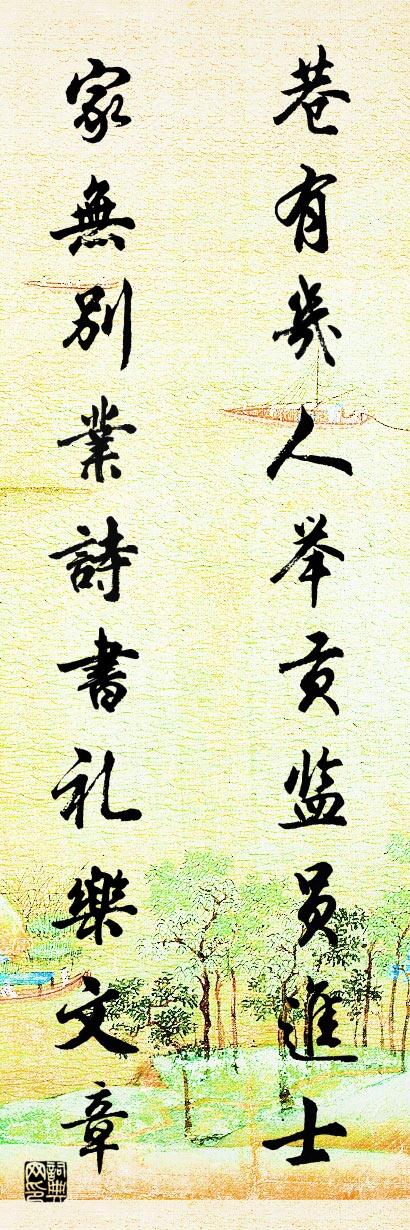 巷有幾人举贡监员進士
家無别業詩書礼樂文章
詞典网印